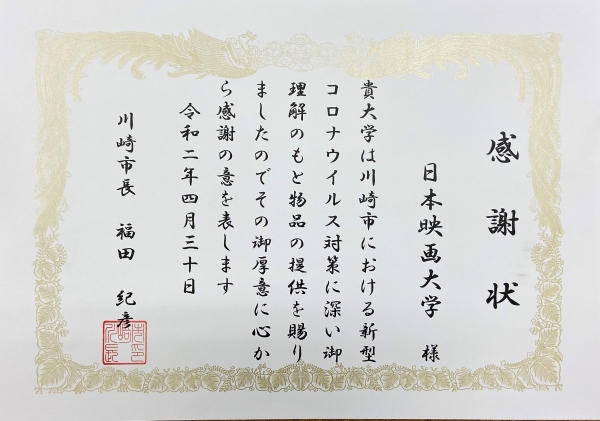 感謝状
日本映画大学 様
貴大学は川崎市における新型
コロナウイルス対策に深い御
理解のもと物品の提供を賜り
ましたのでその御厚意に心か
ら感謝の意を表します
令和二年四月三十日
川崎市長 福田 紀彦